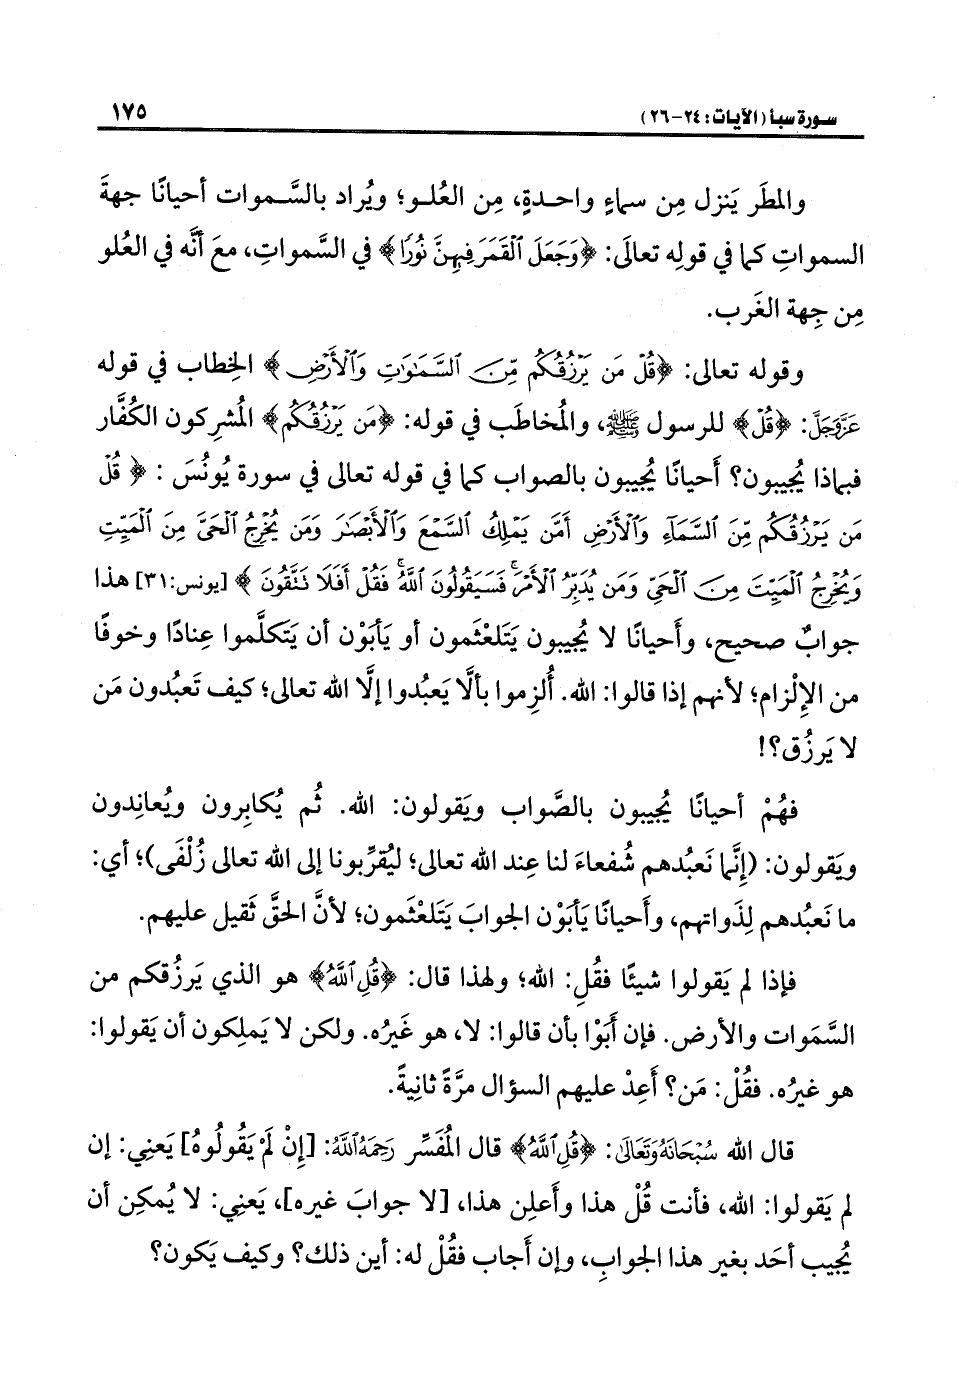 سورة سبأ (الآيات: ٢٤-٢٦) ١٧٥
والمطَر يَنزل مِن سماءٍ واحـدةٍ، مِن العُلـو؛ ويُراد بالسَّـموات أحيانًا جهةَ
السمواتِ كما في قولِه تعالَى: ﴿وَجَعَلَ ٱلْقَمَرَ فِيهِنَّ نُورًا﴾ في السَّمواتِ، معَ أنَّه في العُلو
مِن جِهة الغَرب.
وقوله تعالى: ﴿قُلْ مَن يَرْزُقُكُم مِّنَ ٱلسَّمَٰوَٰتِ وَٱلْأَرْضِ﴾ الخِطاب في قوله
عَزَّوَجَلَّ: ﴿قُلْ﴾ للرسول ﷺ، والمُخاطَب في قوله: ﴿مَن يَرْزُقُكُم﴾ المُشرِكون الكُفَّار
فبماذا يُجيبون؟ أَحيانًا يُجيبون بالصواب كما في قوله تعالى في سورة يُونُسَ: ﴿قُلْ
مَن يَرْزُقُكُم مِّنَ ٱلسَّمَآءِ وَٱلْأَرْضِ أَمَّن يَمْلِكُ ٱلسَّمْعَ وَٱلْأَبْصَٰرَ وَمَن يُخْرِجُ ٱلْحَىَّ مِنَ ٱلْمَيِّتِ
وَيُخْرِجُ ٱلْمَيِّتَ مِنَ ٱلْحَىِّ وَمَن يُدَبِّرُ ٱلْأَمْرَ ۚ فَسَيَقُولُونَ ٱللَّهُ ۚ فَقُلْ أَفَلَا تَتَّقُونَ﴾ [يونس:٣١] هذا
جوابٌ صحيح، وأَحيانًا لا يُجيبون يَتَلعْثَمون أو يَأبَوْن أن يَتكلَّموا عِنادًا وخوفًا
من الإِلْزام؛ لأنهم إذا قالوا: الله. أُلزِموا بألَّا يَعبُدوا إلَّا الله تعالى؛ كيف تَعبُدون مَن
لا يَرزُق؟!
فهُمْ أحيانًا يُجيبون بالصَّواب ويَقولون: الله. ثُم يُكابِرون ويُعانِدون
ويَقولون: (إنَّما نَعبُدهم شُفعاءَ لنا عِند الله تعالى؛ ليُقرِّبونا إلى الله تعالى زُلْفَى)؛ أي:
ما نَعبُدهم لِذَواتهم، وأَحيانًا يَأبَوْن الجوابَ يَتَلعْثَمون؛ لأنَّ الحقَّ ثَقيل عليهم.
فإذا لم يَقولوا شيئًا فقُلِ: الله؛ ولهذا قال: ﴿قُلِ ٱللَّهُ﴾ هو الذي يَرزُقكم من
السَّمَوات والأرض. فإن أَبَوْا بأن قالوا: لا، هو غَيرُه. ولكن لا يَملِكون أن يَقولوا:
هو غيرُه. فقُلْ: مَن؟ أَعِدْ عليهم السؤال مرَّةً ثانِيةً.
قال الله سُبْحَانَهُ وَتَعَالَى: ﴿قُلِ ٱللَّهُ﴾ قال المُفَسِّر رَحِمَهُ اللَّهُ: [إِنْ لَمْ يَقُولُوهُ] يَعنِي: إن
لم يَقولوا: الله، فأنت قُلْ هذا وأَعلِن هذا، [لا جوابَ غيره]، يَعنِي: لا يُمكِن أن
يُجيب أحَد بغير هذا الجوابِ، وإن أَجاب فقُلْ له: أين ذلك؟ وكيف يَكون؟